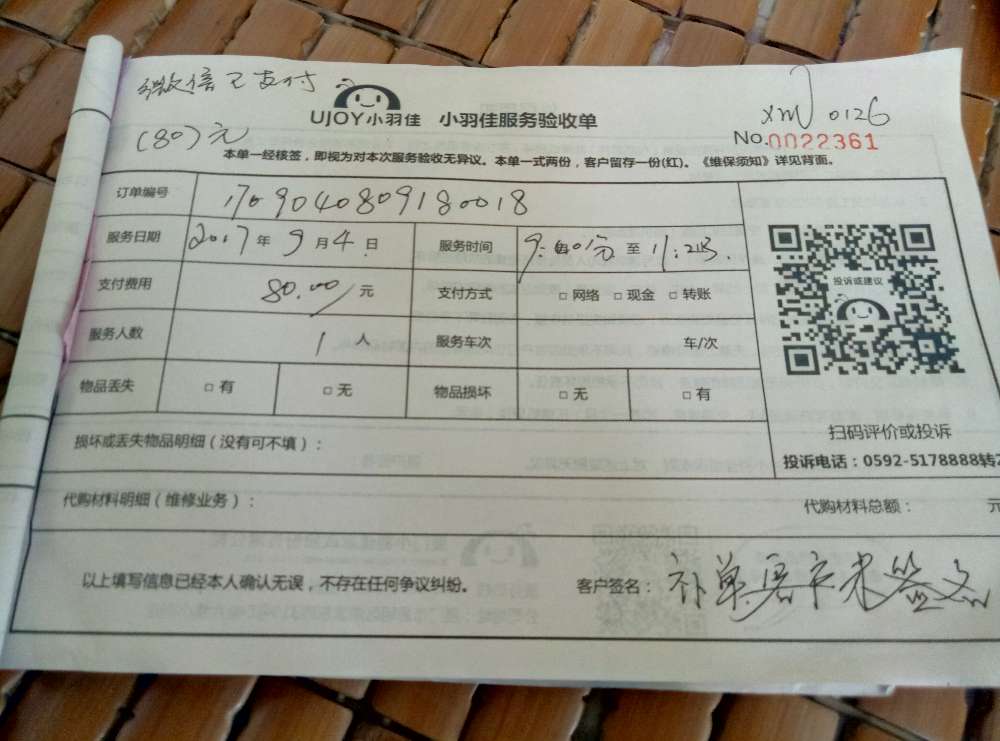 微信已支付
(80)元
UJOY小羽佳 小羽佳服务验收单
xm 0126
No.0022361
本单一经核签，即视为对本次服务验收无异议。本单一式两份，客户留存一份(红)。《维保须知》详见背面。
订单编号 1709040809180018
服务日期 2017年9月4日 服务时间 9:01至11:21
支付费用 80.00元 支付方式 □网络 □现金 □转账
服务人数 1人 服务车次 车/次
物品丢失 □有 □无 物品损坏 □无 □有
投诉或建议
扫码评价或投诉
投诉电话：0592-5178888转2
损坏或丢失物品明细（没有可不填）：
代购材料明细（维修业务）： 代购材料总额： 元
以上填写信息已经本人确认无误，不存在任何争议纠纷。 客户签名：补单客户未签名